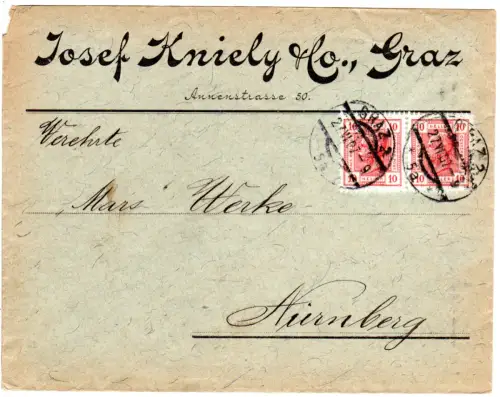 Josef Kniely & Co., Graz
Annenstrasse 50.
Verehrte
Mars Werke
Nürnberg
10 10 10 10
GRAZ 2
GRAZ 2